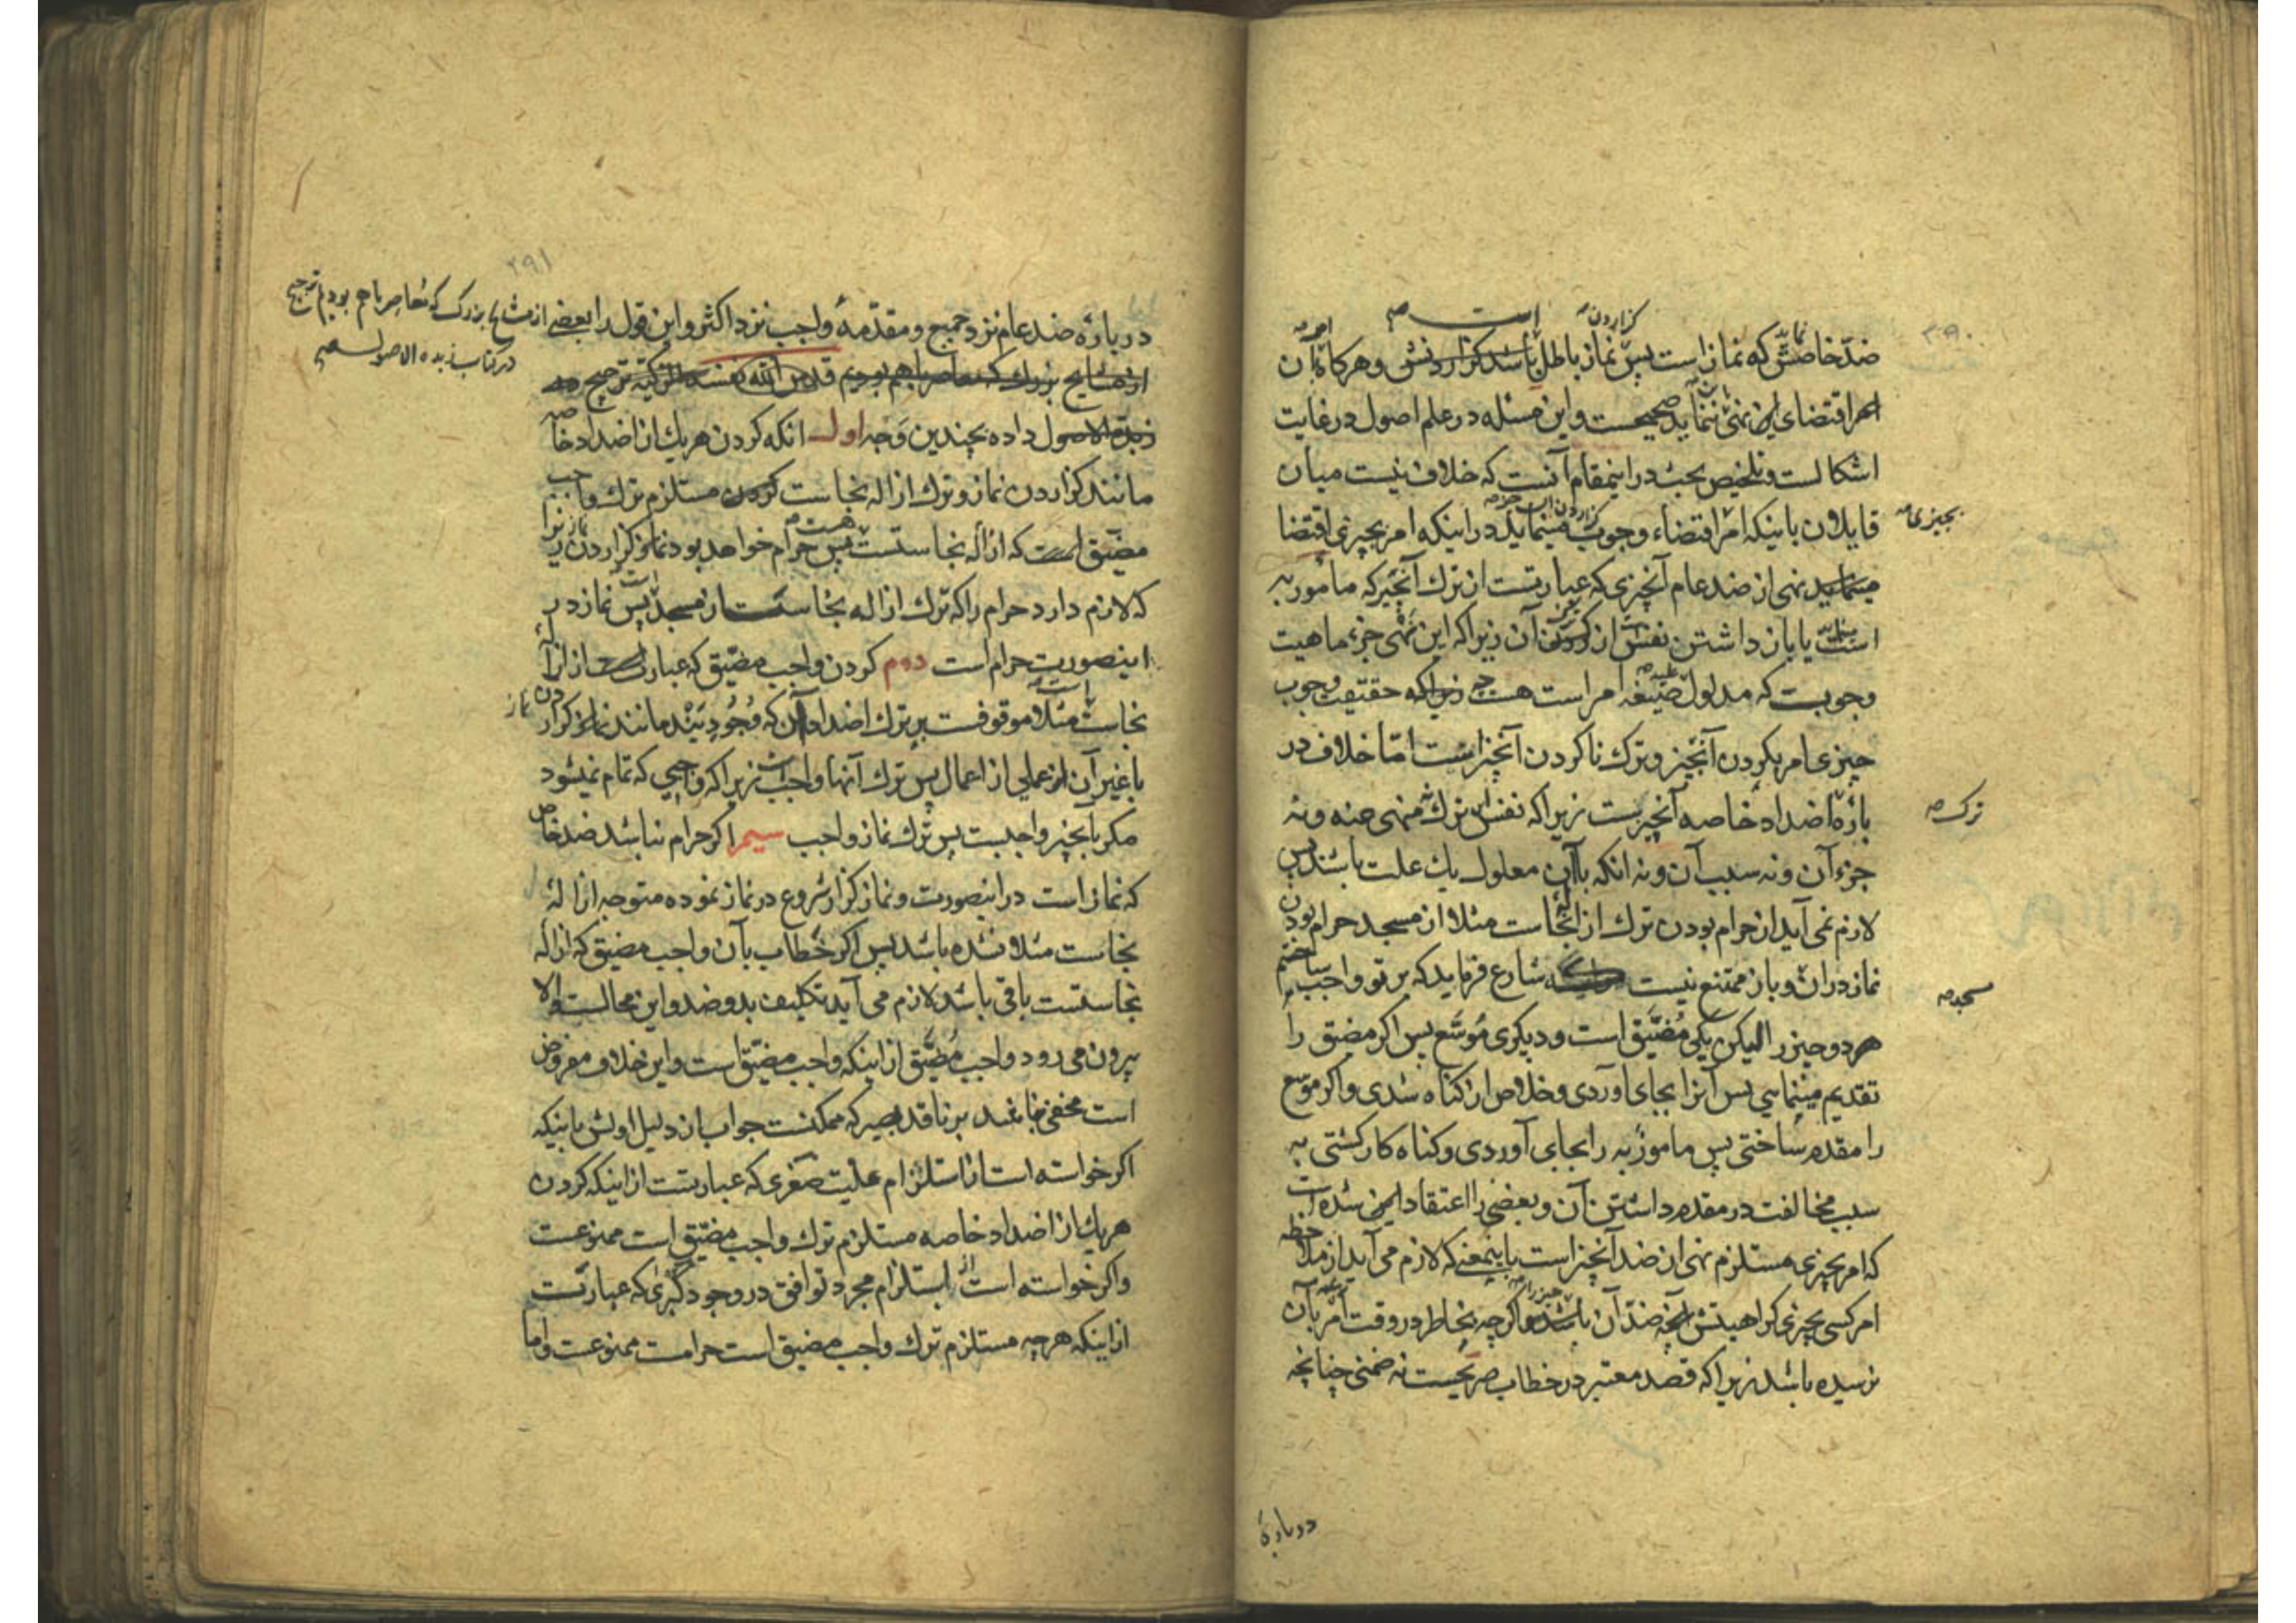 ۳۹۰
گزاردن است امر
ضدّ خاصّش که نماز است پس نماز باطل باشد گزاردنش و هرگاه آن
امر اقتضای این نهی ننماید صحیحست و این مسئله در علم اصول در غایت
اشکالست و تلخیص بحث در اینمقام آنست که خلاف نیست میان
قایلان باینکه امر اقتضاء وجوب مینماید در اینکه امر بچیزی اقتضا
بچیزی
مینماید نهی از ضد عام آنچیزی که عبارتست از ترک آنچیز که مأمور به
است یا باز داشتن نفس از کردن آن زیرا که این نهی جزء ماهیت
وجوبست که مدلول صیغه امر است زیرا که حقیقت وجوب
چیزی امر بکردن آنچیز و ترک ناکردن آنچیز است امّا خلاف در
بارهٔ اضداد خاصه آنچیزست زیرا که نفس ترک منهی عنه و نه
ترک
جزء آن و نه سبب آن و نه انکه با آن معلول یک علت باشد پس
لازم نمی آید از حرام بودن ترک ازالهٔ نجاست مثلا از مسجد حرام بودن
نماز در ان و باز ممتنع نیست که شارع فرماید که بر تو واجب ساختم
مسجد
هر دو چیز را لیکن یکی مُضَیَّق است و دیگری مُوَسَّع پس اگر مضیق را
تقدیم مینمایی پس آنرا بجای آوردی و خلاص از گناه شدی و اگر موسع
را مقدم ساختی پس مامورٌ به را بجای آوردی و گناه کار گشتی به
سبب مخالفت در مقدم داشتن آن و بعضی را اعتقاد این شده است
که امر بچیزی مستلزم نهی از ضد آنچیز است باینمعنی که لازم می آید از ملاحظه
امر کسی بچیزی کراهیتش آنچه ضدّ آن باشد و اگر چه بخاطر در وقت امر بآن
نرسیده باشد زیرا که قصد معتبر در خطاب صریحست نه ضمنی چنانچه
دربارهٔ
۳۹۱
دربارهٔ ضد عام نزد جمیع و مقدّمهٔ واجب نزد اکثر و این قول را بعضی
از مشایخ بزرگ که معاصر با هم بودیم ترجیح
در کتاب زبدة الاصول
از مشایخ بزرگ که معاصر با هم بودیم قدس الله نفسه الزکیّه ترجیح در
زبدة الاصول داده بچندین وَجه اول انکه کردن هر یک از اضداد خاصه
مانند گزاردن نماز و ترک ازاله نجاست کردن مستلزم ترک واجب
مضیّق است که ازاله نجاستست پس حرام خواهد بود نماز گزاردن زیرا
که لازم دارد حرام را که ترک ازاله نجاست از مسجد پس نماز در
اینصورت حرام است دوم کردن واجب مضیّق که عبارت از ازاله
نجاست مثلا موقوفست بر ترک اضداد آن که وُجُودِیَند مانند نماز گزاردن
یا غیر آن از عملی از اعمال پس ترک آنها واجب است زیرا که واجبی که تمام نمیشود
مگر بآنچیز واجبست پس ترک نماز واجب سیم اگر حرام نباشد ضد خاص
که نماز است در اینصورت و نماز گزار شروع در نماز نموده متوجه ازالهٔ
نجاست مثلا نشده باشد پس اگر خطاب بآن واجب مضیق که ازاله
نجاستست باقی باشد لازم می آید تکلیف بدو ضد و این محالست و الا
بیرون می رود واجب مُضَیَّق از اینکه واجب مضیّق است و این خلاف مفروض
است مخفی نماند بر ناقد بصیر که ممکنست جواب از دلیل اولش باینکه
اگر خواسته است از استلزام علیّت صغری که عبارتست از اینکه کردن
هر یک از اضداد خاصه مستلزم ترک واجب مضیّق است ممنوعست
و اگر خواسته است از استلزام مجرد توافق در وجود کبری که عبارتست
از اینکه هر چه مستلزم ترک واجب مضیق است حرامست ممنوعست و اما